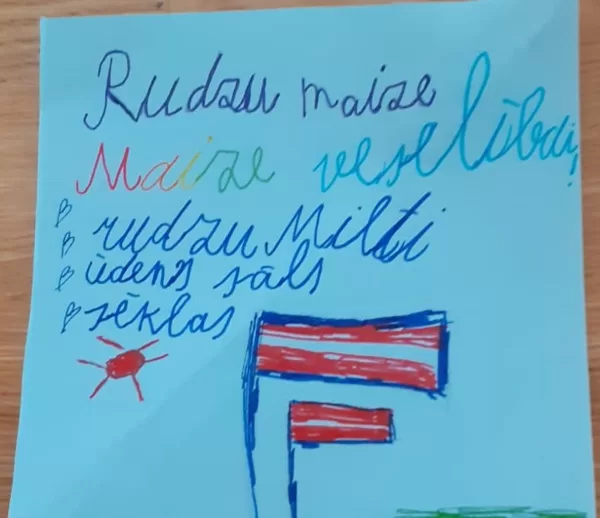 Rudzu maize
Maize veselībai,
rudzu Milti
ūdens sāls
sēklas